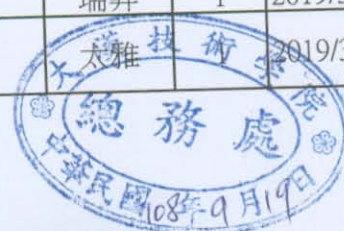 瑞昇 1 2019/3
太雅 1 2019/3
大漢技術學院
總務處
中華民國108年9月19日